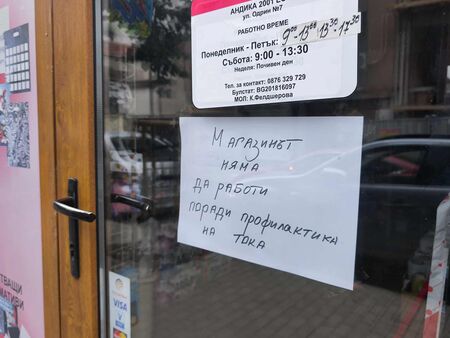 АНДИКА 2001 Е
ул. Одрин №7
РАБОТНО ВРЕМЕ
Понеделник - Петък: 9⁰⁰-13⁰⁰ 13³⁰-17³⁰
Събота: 9:00 - 13:30
Неделя: Почивен ден
Тел. за контакт: 0876 329 729
Булстат: BG201816097
МОЛ: К.Фелдшерова
МАГАЗИНЪТ
НЯМА
ДА РАБОТИ
ПОРАДИ ПРОФИЛАКТИКА
НА ТОКА
VISA